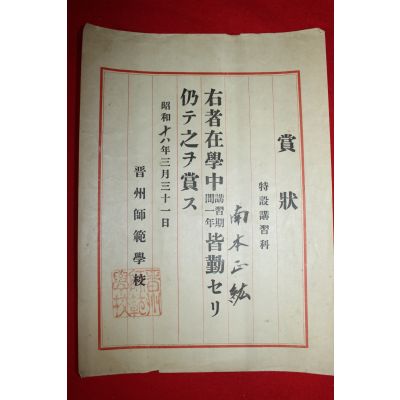 賞狀
特設講習科
南本正紘
右者在學中講習期間一年皆勤セリ
仍テ之ヲ賞ス
昭和十八年三月三十一日
晋州師範學校
晋州師範學校